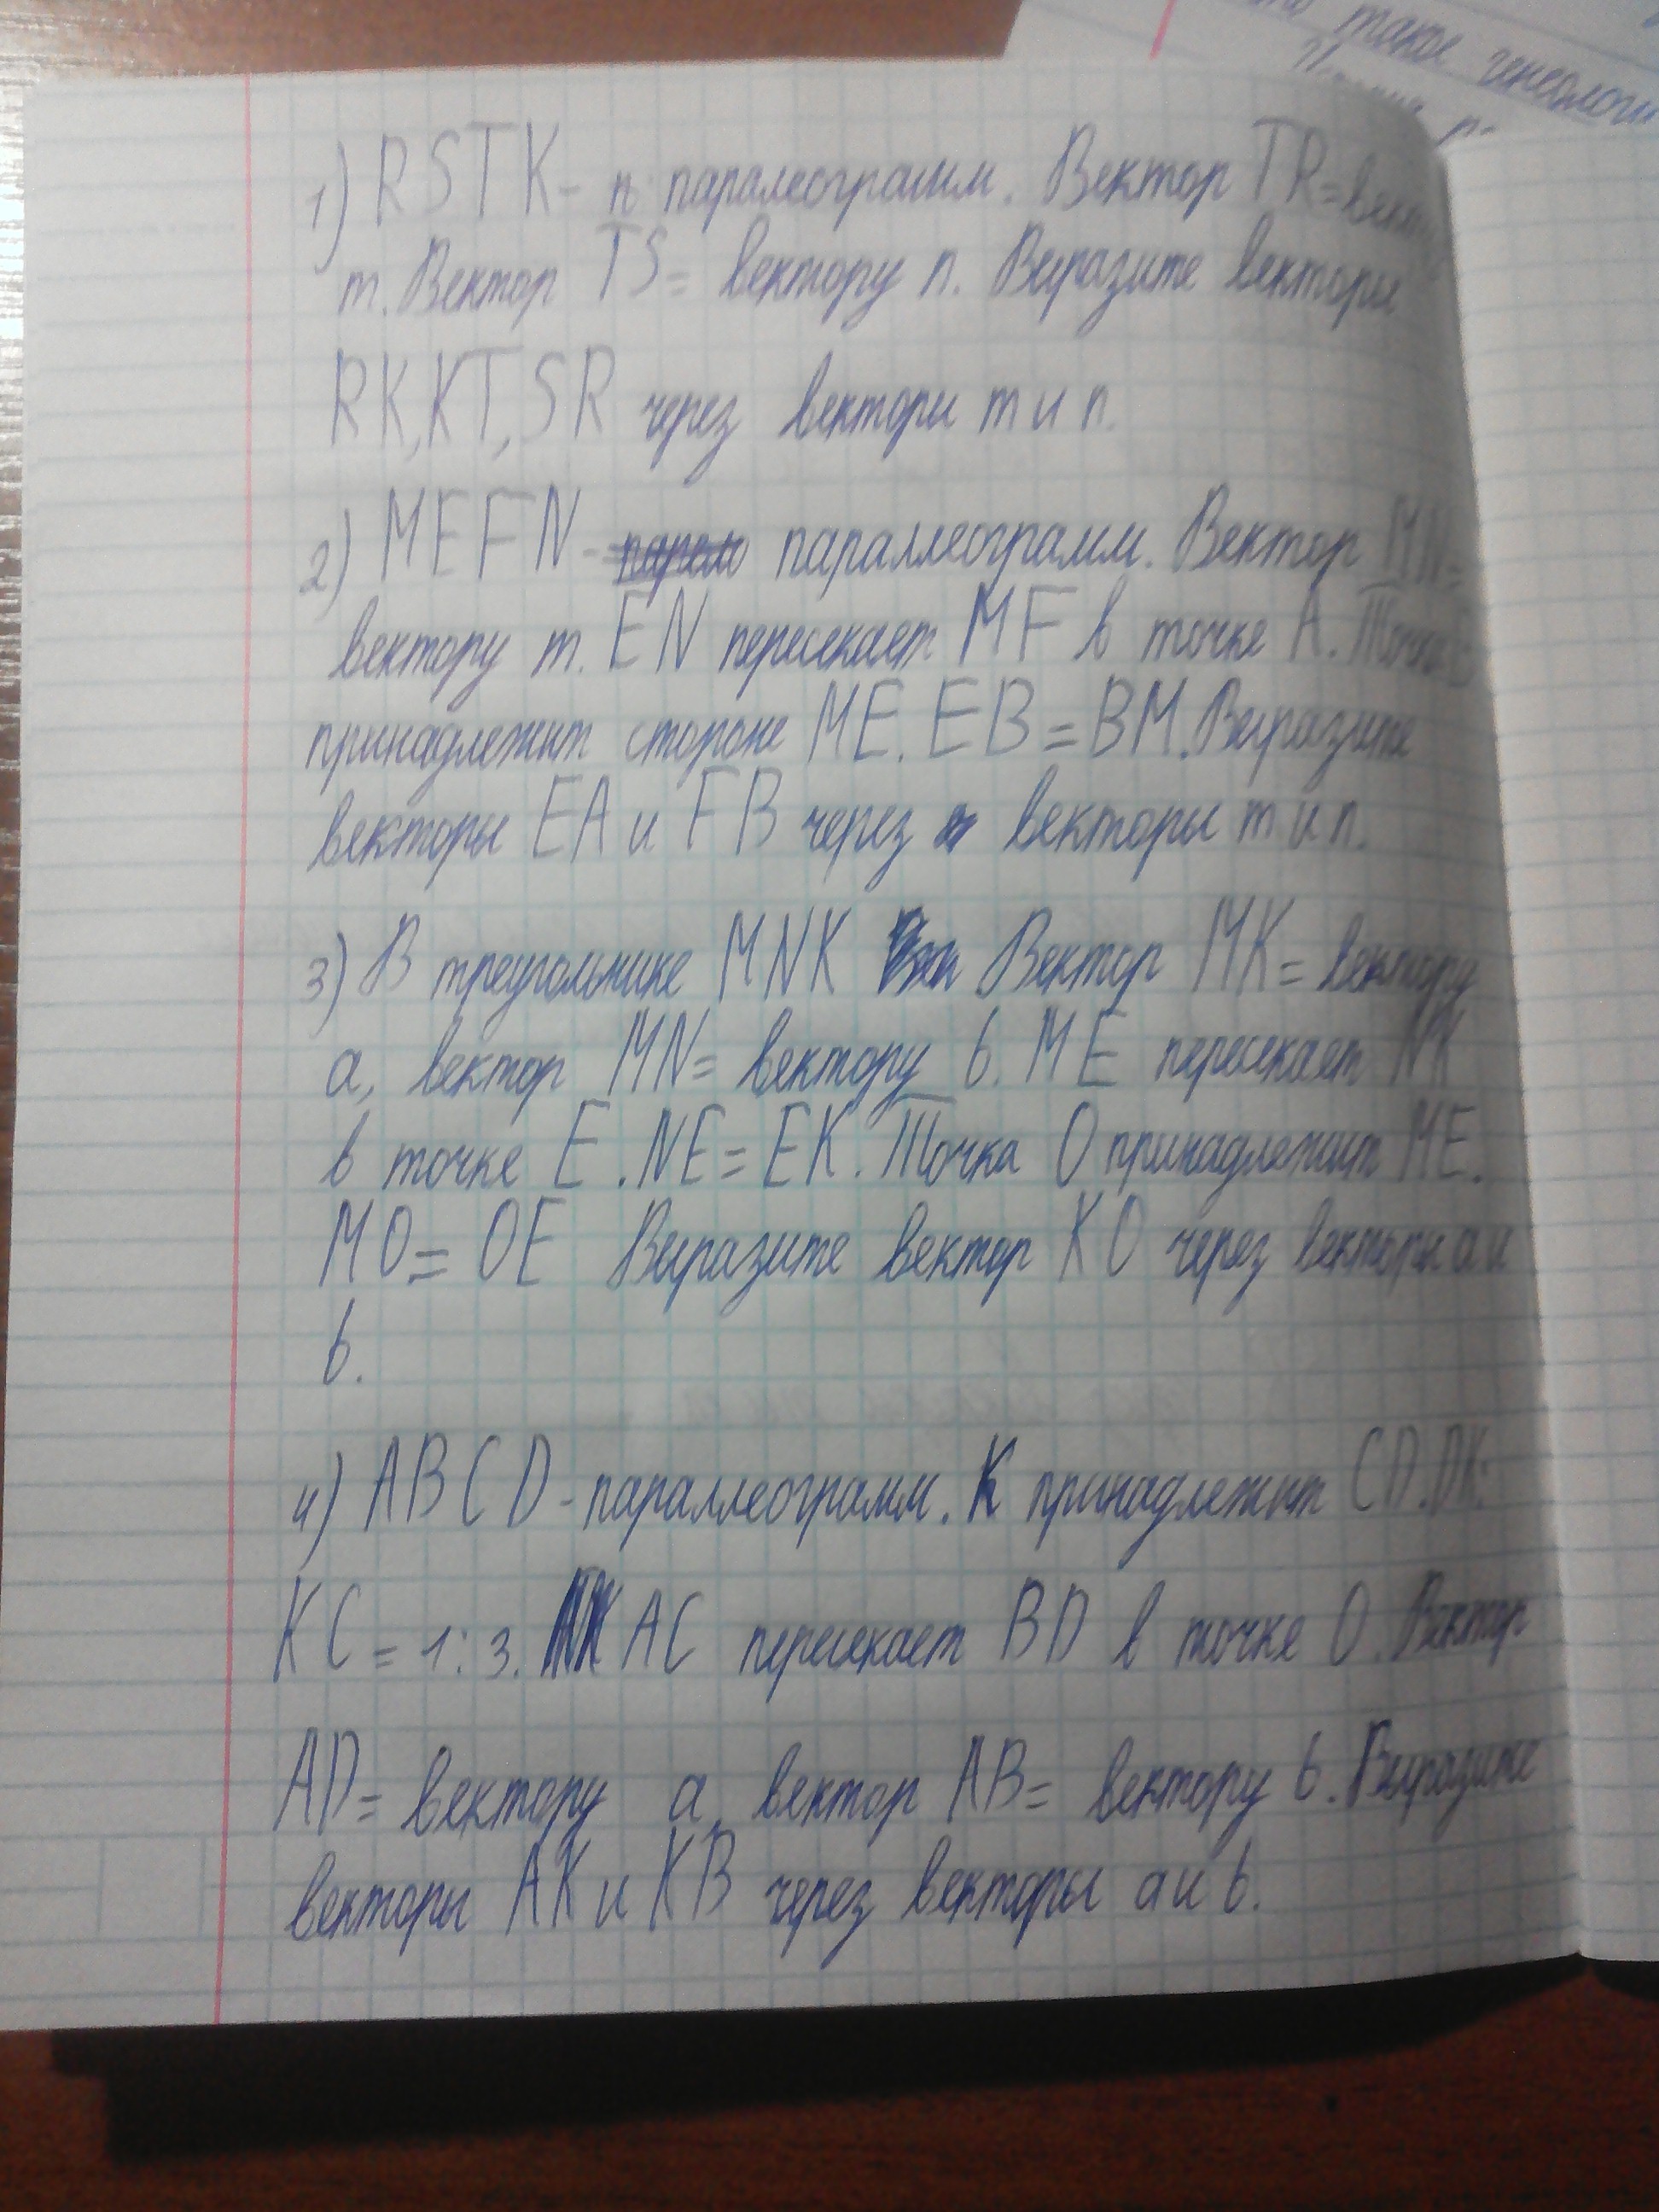 то такое генеалоги
1) RSTK - п параллеограмм. Вектор TR = век
m. Вектор TS = вектору n. Выразите векторы
RK, KT, SR через векторы m и n.
2) MEFN - параллеограмм. Вектор MN =
вектору m. EN пересекает MF в точке A. Точка B
принадлежит стороне ME. EB = BM. Выразите
векторы EA и FB через векторы m и n.
3) В треугольнике MNK Вектор MK = вектору
a, вектор MN = вектору b. ME пересекает NK
в точке E. NE = EK. Точка O принадлежит ME.
MO = OE Выразите вектор KO через векторы a и
b.
4) ABCD - параллеограмм. K принадлежит CD. DK:
KC = 1:3. AC пересекает BD в точке O. Вектор
AD = вектору a, вектор AB = вектору b. Выразите
векторы AK и KB через векторы a и b.